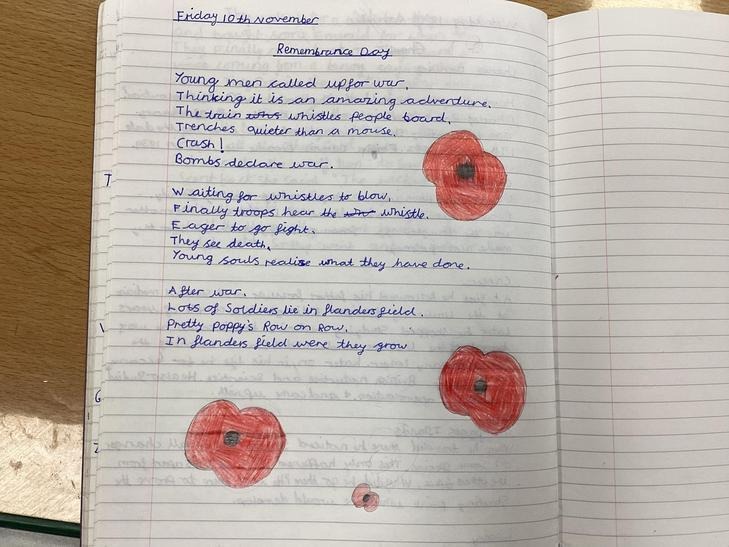 Friday 10th November
Remembrance Day
Young men called up for war.
Thinking it is an amazing adventure.
The train whistles people board.
Trenches quieter than a mouse.
Crash!
Bombs declare war.
T
Waiting for whistles to blow,
Finally troops hear the whistle.
Eager to go fight.
They see death.
Young souls realise what they have done.
After war.
Lots of Soldiers lie in flanders field.
Pretty Poppy's Row on Row.
In flanders field were they grow